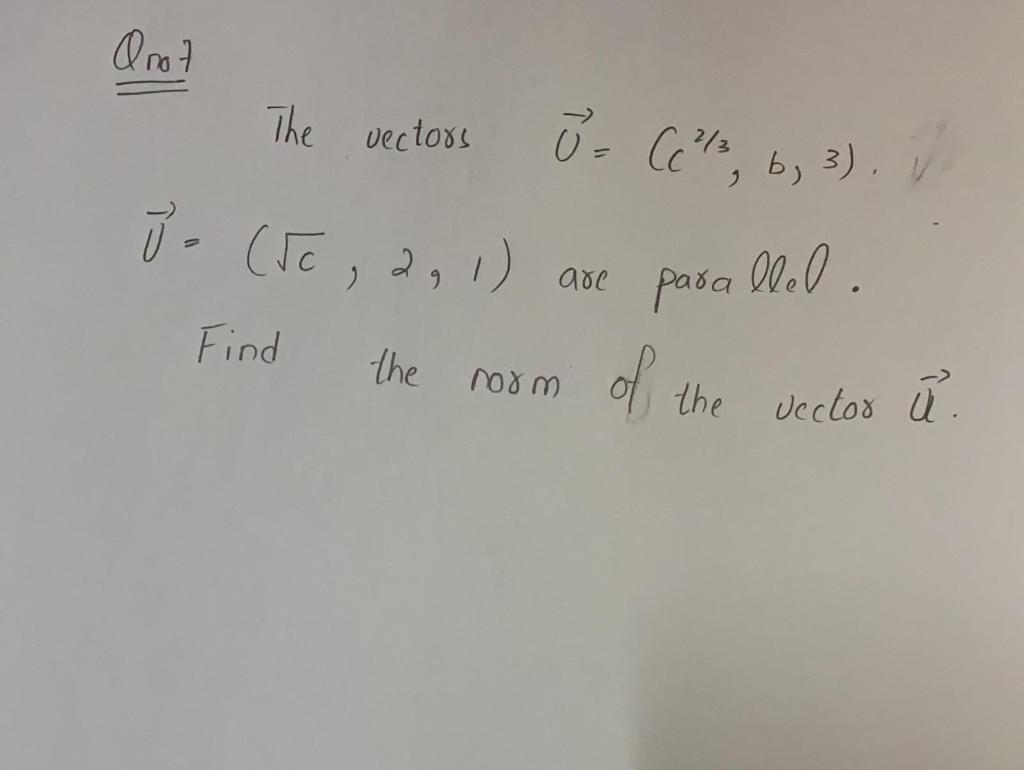 Q no 7
The vectors U⃗ = (c^2/3, b, 3).
U⃗ = (√c, 2, 1) are parallel.
Find the norm of the vector u⃗.